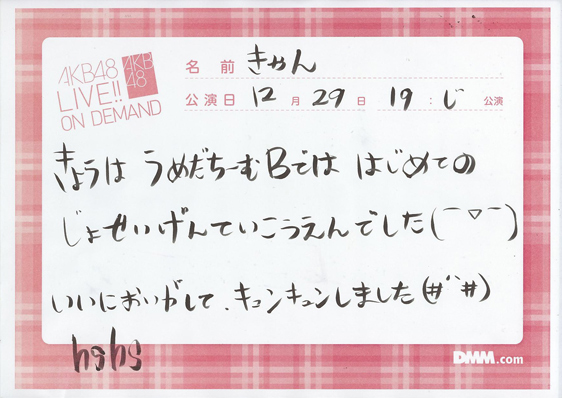 AKB48
LIVE!!
ON DEMAND
AKB
48
名前 きゃん
公演日 12月29日 19:じ 公演
きょうは うめだちーむBでは はじめての
じょせいげんていこうえんでした(￣▽￣)
いいにおいがして、キュンキュンしました(#´`#)
hshs
DMM.com